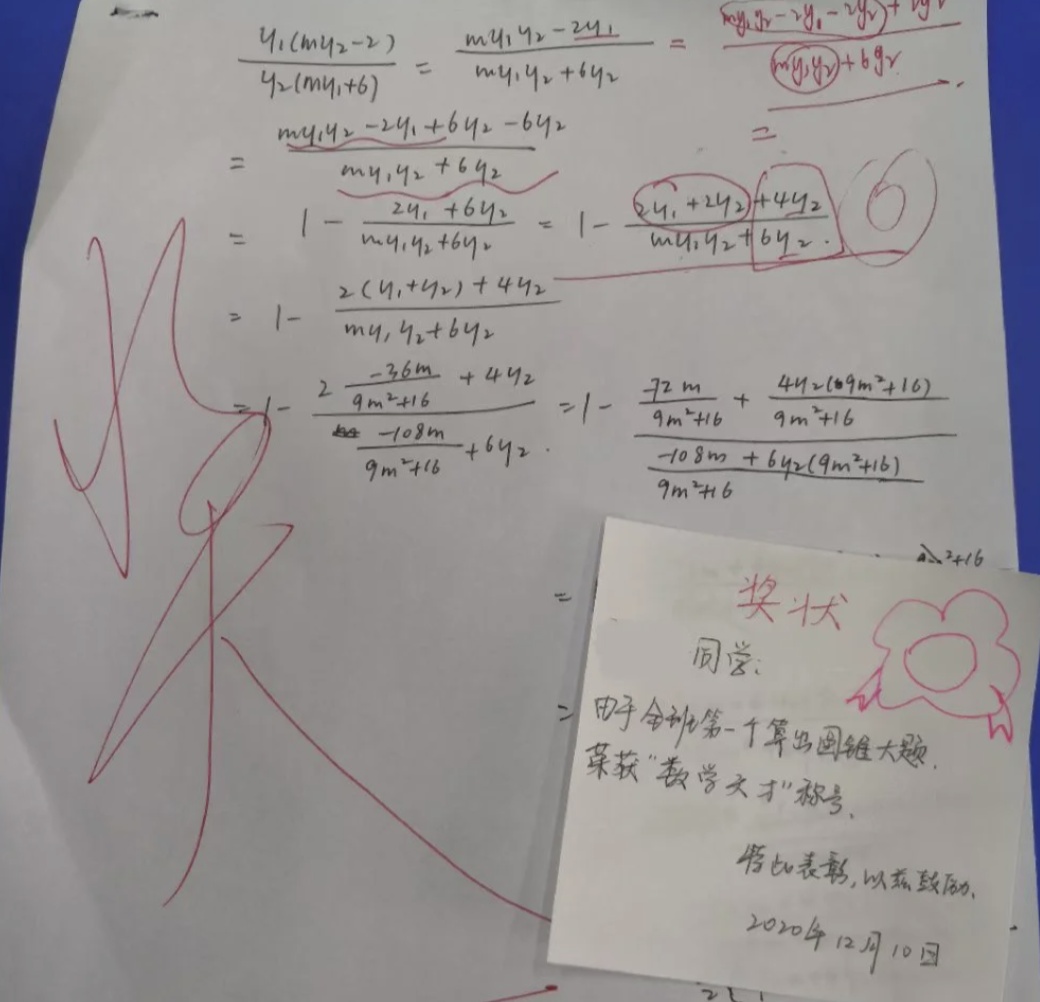 y₁(my₂-2)/y₂(my₁+6) = my₁y₂-2y₁/my₁y₂+6y₂ = my₁y₂-2y₁-2y₂+2y₂/my₁y₂+6y₂
= my₁y₂-2y₁+6y₂-6y₂/my₁y₂+6y₂ =
= 1 - 2y₁+6y₂/my₁y₂+6y₂ = 1 - 2y₁+2y₂+4y₂/my₁y₂+6y₂.
= 1 - 2(y₁+y₂)+4y₂/my₁y₂+6y₂
= 1 - 2 -36m/9m²+16 + 4y₂ / -108m/9m²+16 + 6y₂. = 1 - -72m/9m²+16 + 4y₂(9m²+16)/9m²+16 / -108m+6y₂(9m²+16)/9m²+16
=
=
奖状
同学:
由于全班第一个算出圆锥大题.
荣获"数学天才"称号.
特此表彰,以兹鼓励.
2020年12月10日